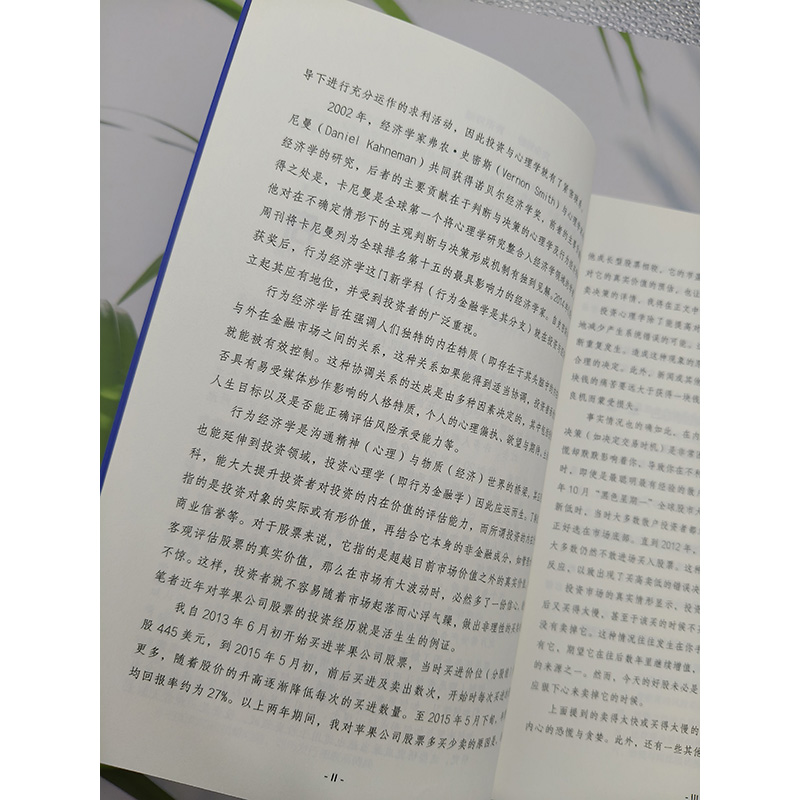 导下进行充分运作的求利活动，因此投资与心理学就有了
2002年，经济学家弗农·史密斯（Vernon Smith）与心理学
尼曼（Daniel Kahneman）共同获得诺贝尔经济学奖，前者的主要
经济学的研究，后者的主要贡献在于判断与决策的心理学及行为
得之处是，卡尼曼是全球第一个将心理学研究整合入经济学
他对在不确定情形下的主观判断与决策形成机制有独到见解，2014年
周刊将卡尼曼列为全球排名第十五的最具影响力的经济学家。自
获奖后，行为经济学这门新学科（行为金融学是其分支）就在
立起其应有地位，并受到投资者的广泛重视。
行为经济学旨在强调人们独特的内在特质（即存在于其头脑中的
与外在金融市场之间的关系，这种关系如果能得到适当协调，投资者
就能被有效控制。这种协调关系的达成是由多种因素决定的，其中包括
否具有易受媒体炒作影响的人格特质，个人的心理偏执、欲望与期待，
人生目标以及是否能正确评估风险承受能力等。
行为经济学是沟通精神（心理）与物质（经济）世界的桥梁，
也能延伸到投资领域，投资心理学（即行为金融学）因此应运而生。了解
科，能大大提升投资者对投资的内在价值的评估能力，而所谓投资的内在
指的是投资对象的实际或有形价值，再结合它本身的非金融成分，如
商业信誉等。对于股票来说，它指的是超越目前市场价值之外的真实价值
客观评估股票的真实价值，那么在市场有大波动时，必然多了一份信心，
不惊。这样，投资者就不容易随着市场起落而心浮气躁，做出非理性的买卖
笔者近年对苹果公司股票的投资经历就是活生生的例证。
我自2013年6月初开始买进苹果公司股票，当时买进价位（分股前）
股445美元，到2015年5月初，前后买进及卖出数次，开始时每次买进
更多，随着股价的升高逐渐降低每次的买进数量。至2015年5月下旬，
均回报率约为27%。以上两年期间，我对苹果公司股票多买少卖的原因是，
- II -
他成长型股票相较，它的市盈
对它的真实价值的预估，也让
卖决策的详情，我将在正文中
投资心理学除了能提高对
地减少产生系统错误的可能。
断重复发生。造成这种现象的
合理的决定。此外，新闻或其他
块钱的痛苦要远大于获得一块钱
良机而蒙受损失。
事实情况也的确如此，在内
决策（如决定交易时机）是非常
慌却默默影响着你，导致你在不
时，即使是最聪明最有经验的散
年10月“黑色星期一”全球股市
新低时，当时大多数散户投资者都
正好选在市场底部。直到2012年，
大多数仍然不敢进场买入股票。这种
反应，以致出现了买高卖低的错误决
投资市场的真实情形显示，投资
后又买得太慢，甚至于该买的时候不
没有卖掉它。这种情况往往发生在你手
有它，期望它在往后数年里继续增值，
的朱漆之一。然而，今天的好股未必是
应狠下心来卖掉它的时候。
上面提到的卖得太快或买得太慢的
内心的恐慌与贪婪。此外，还有一些其他
- III